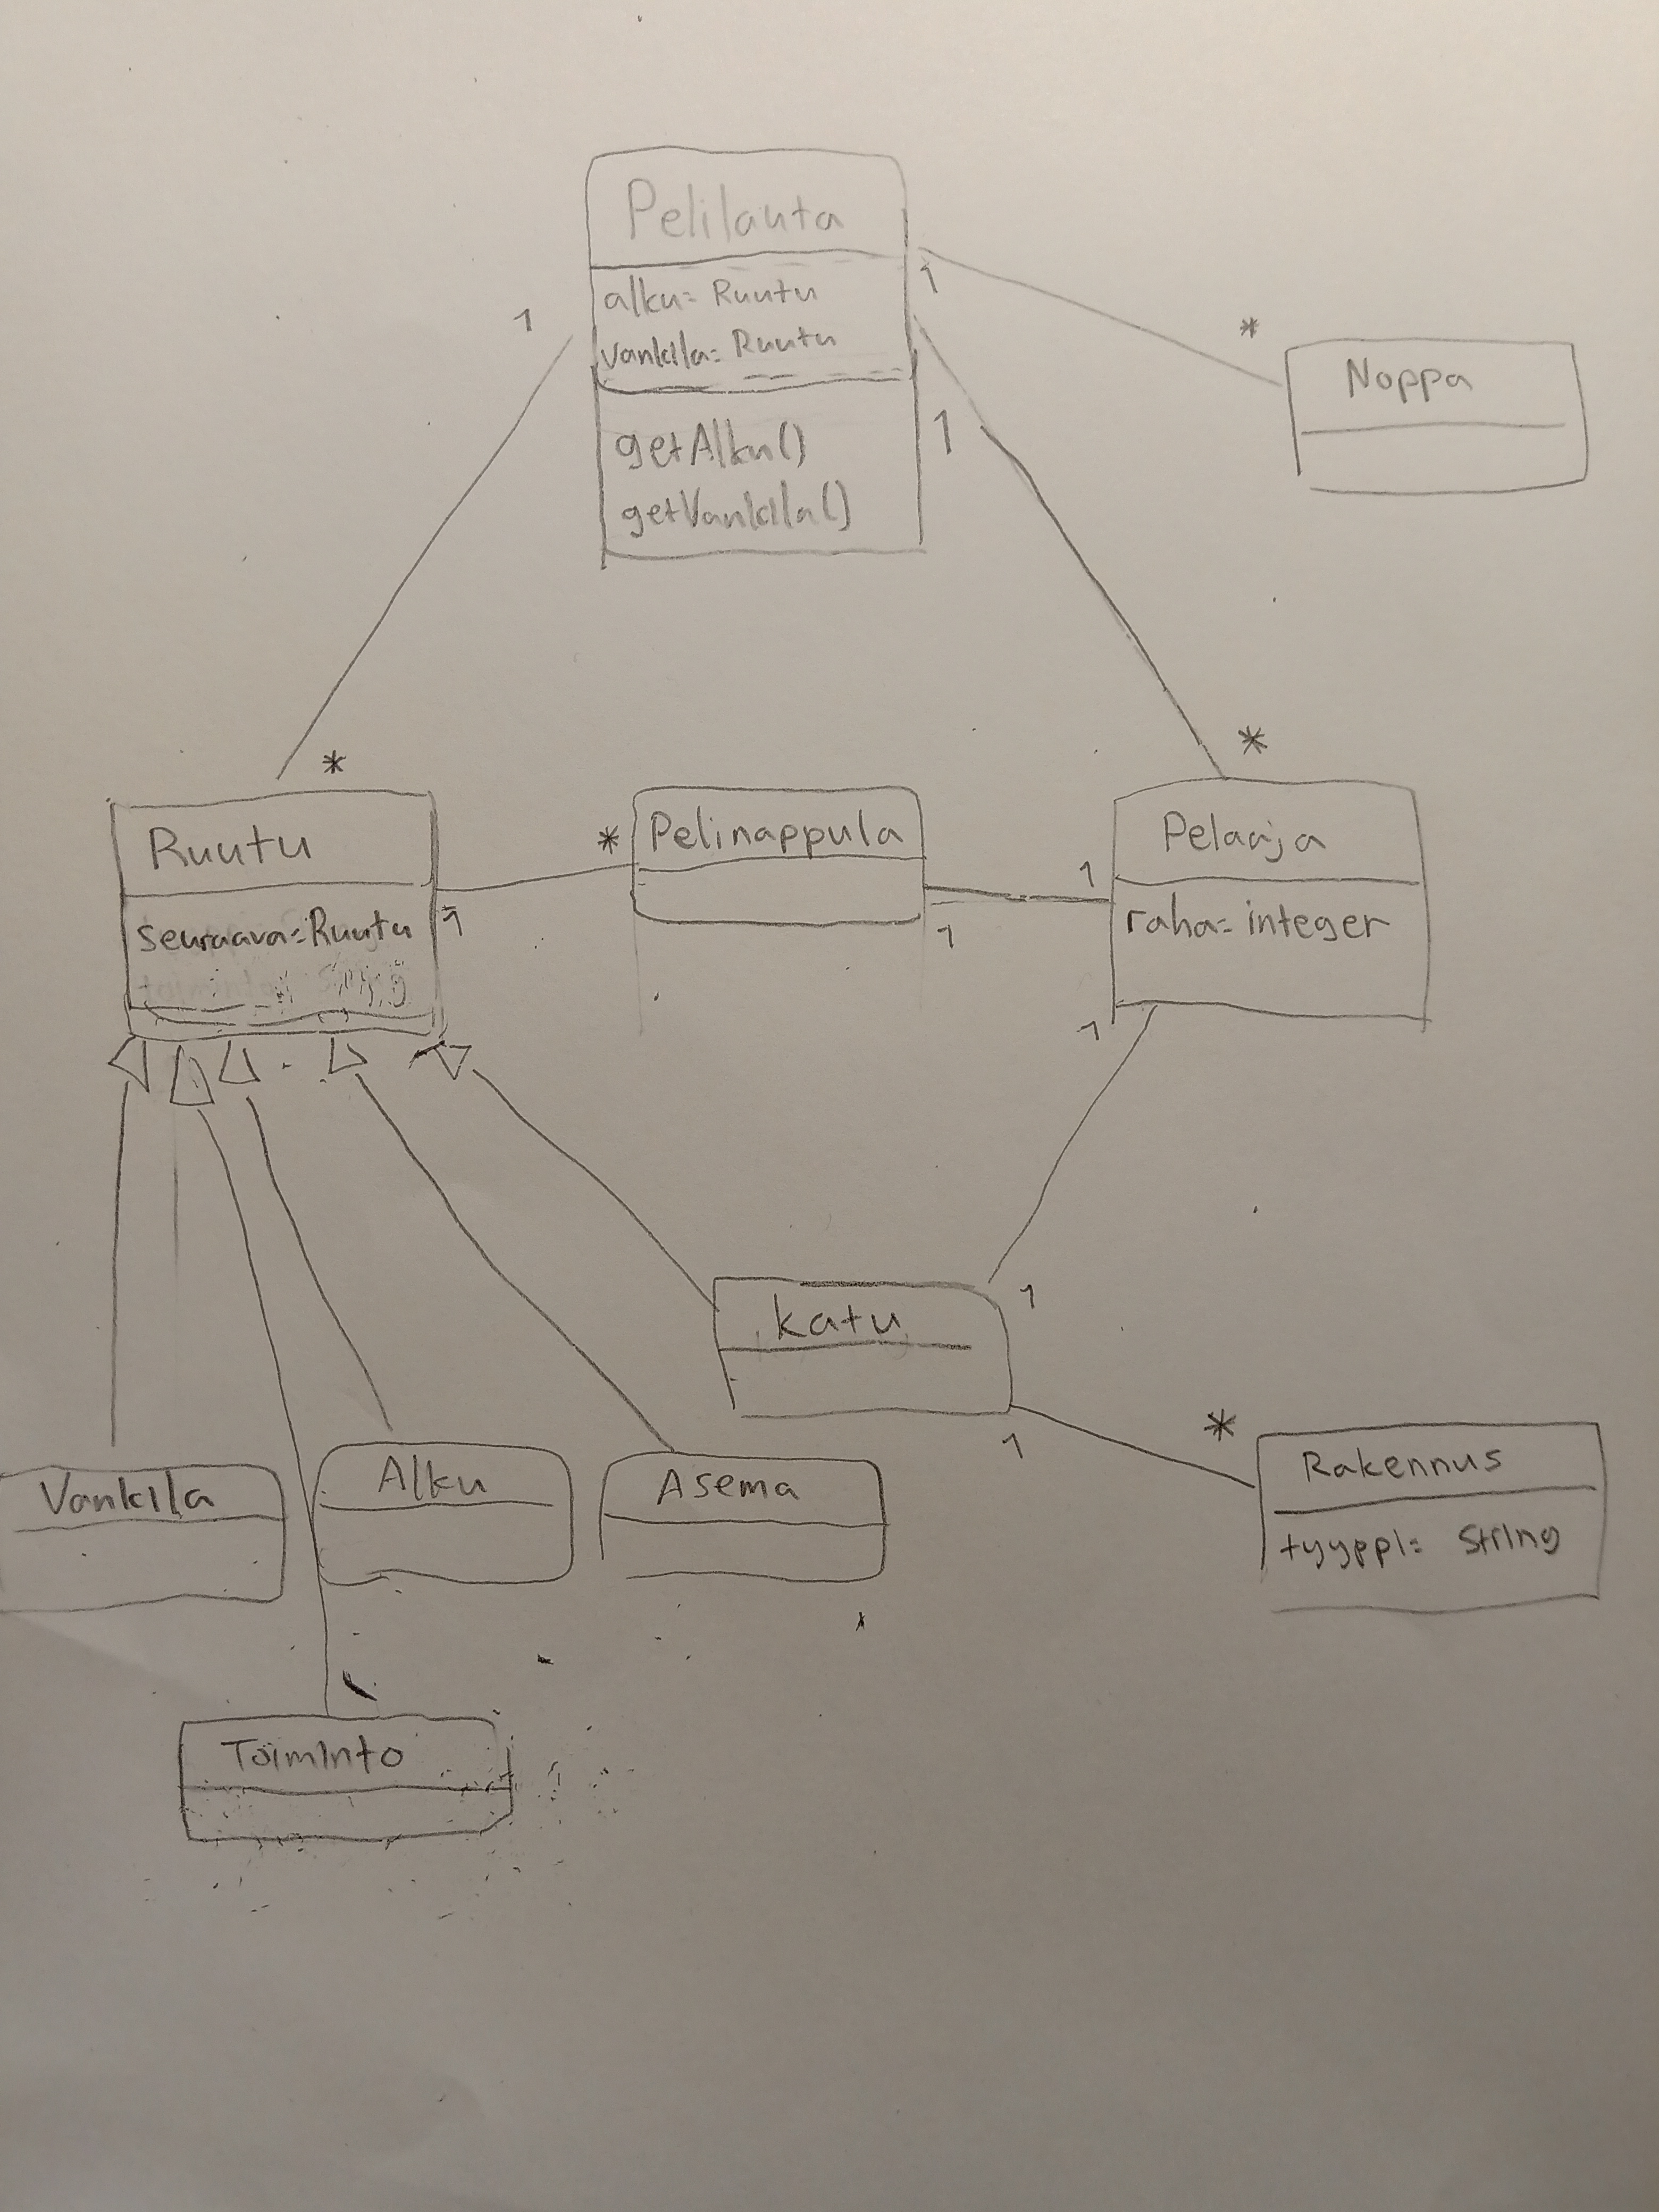 Pelilauta
alku: Ruutu
vankila: Ruutu
getAlku()
getVankila()
1
1
1
*
Noppa
*
*
Ruutu
seuraava: Ruutu
1
*
Pelinappula
1
1
Pelaaja
raha: integer
1
1
Katu
1
*
Rakennus
tyyppi: String
Vankila
Alku
Asema
Toiminto